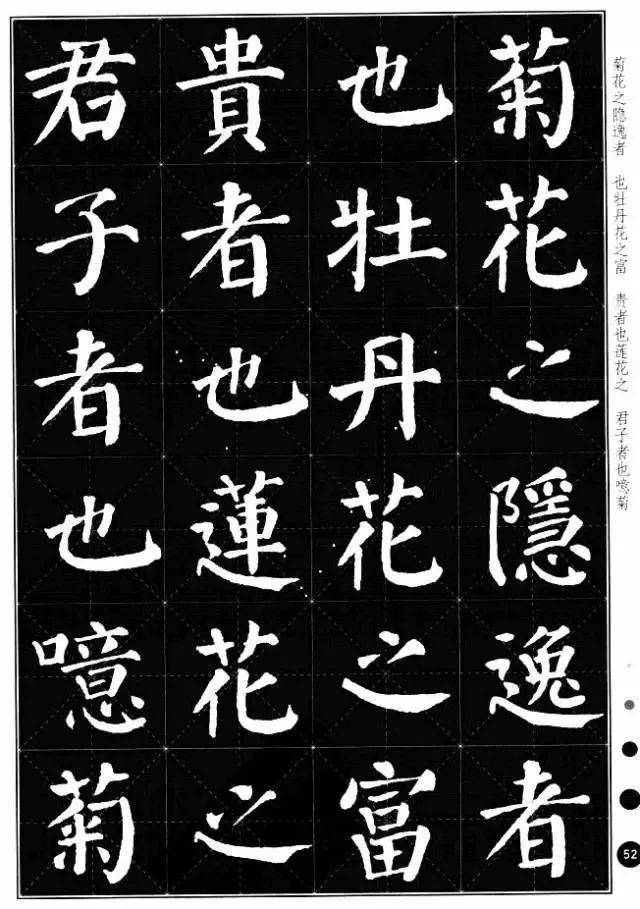 菊花之隱逸者
也牡丹花之富
貴者也蓮花之
君子者也噫菊
菊花之隐逸者 也牡丹花之富 贵者也莲花之 君子者也噫菊
52